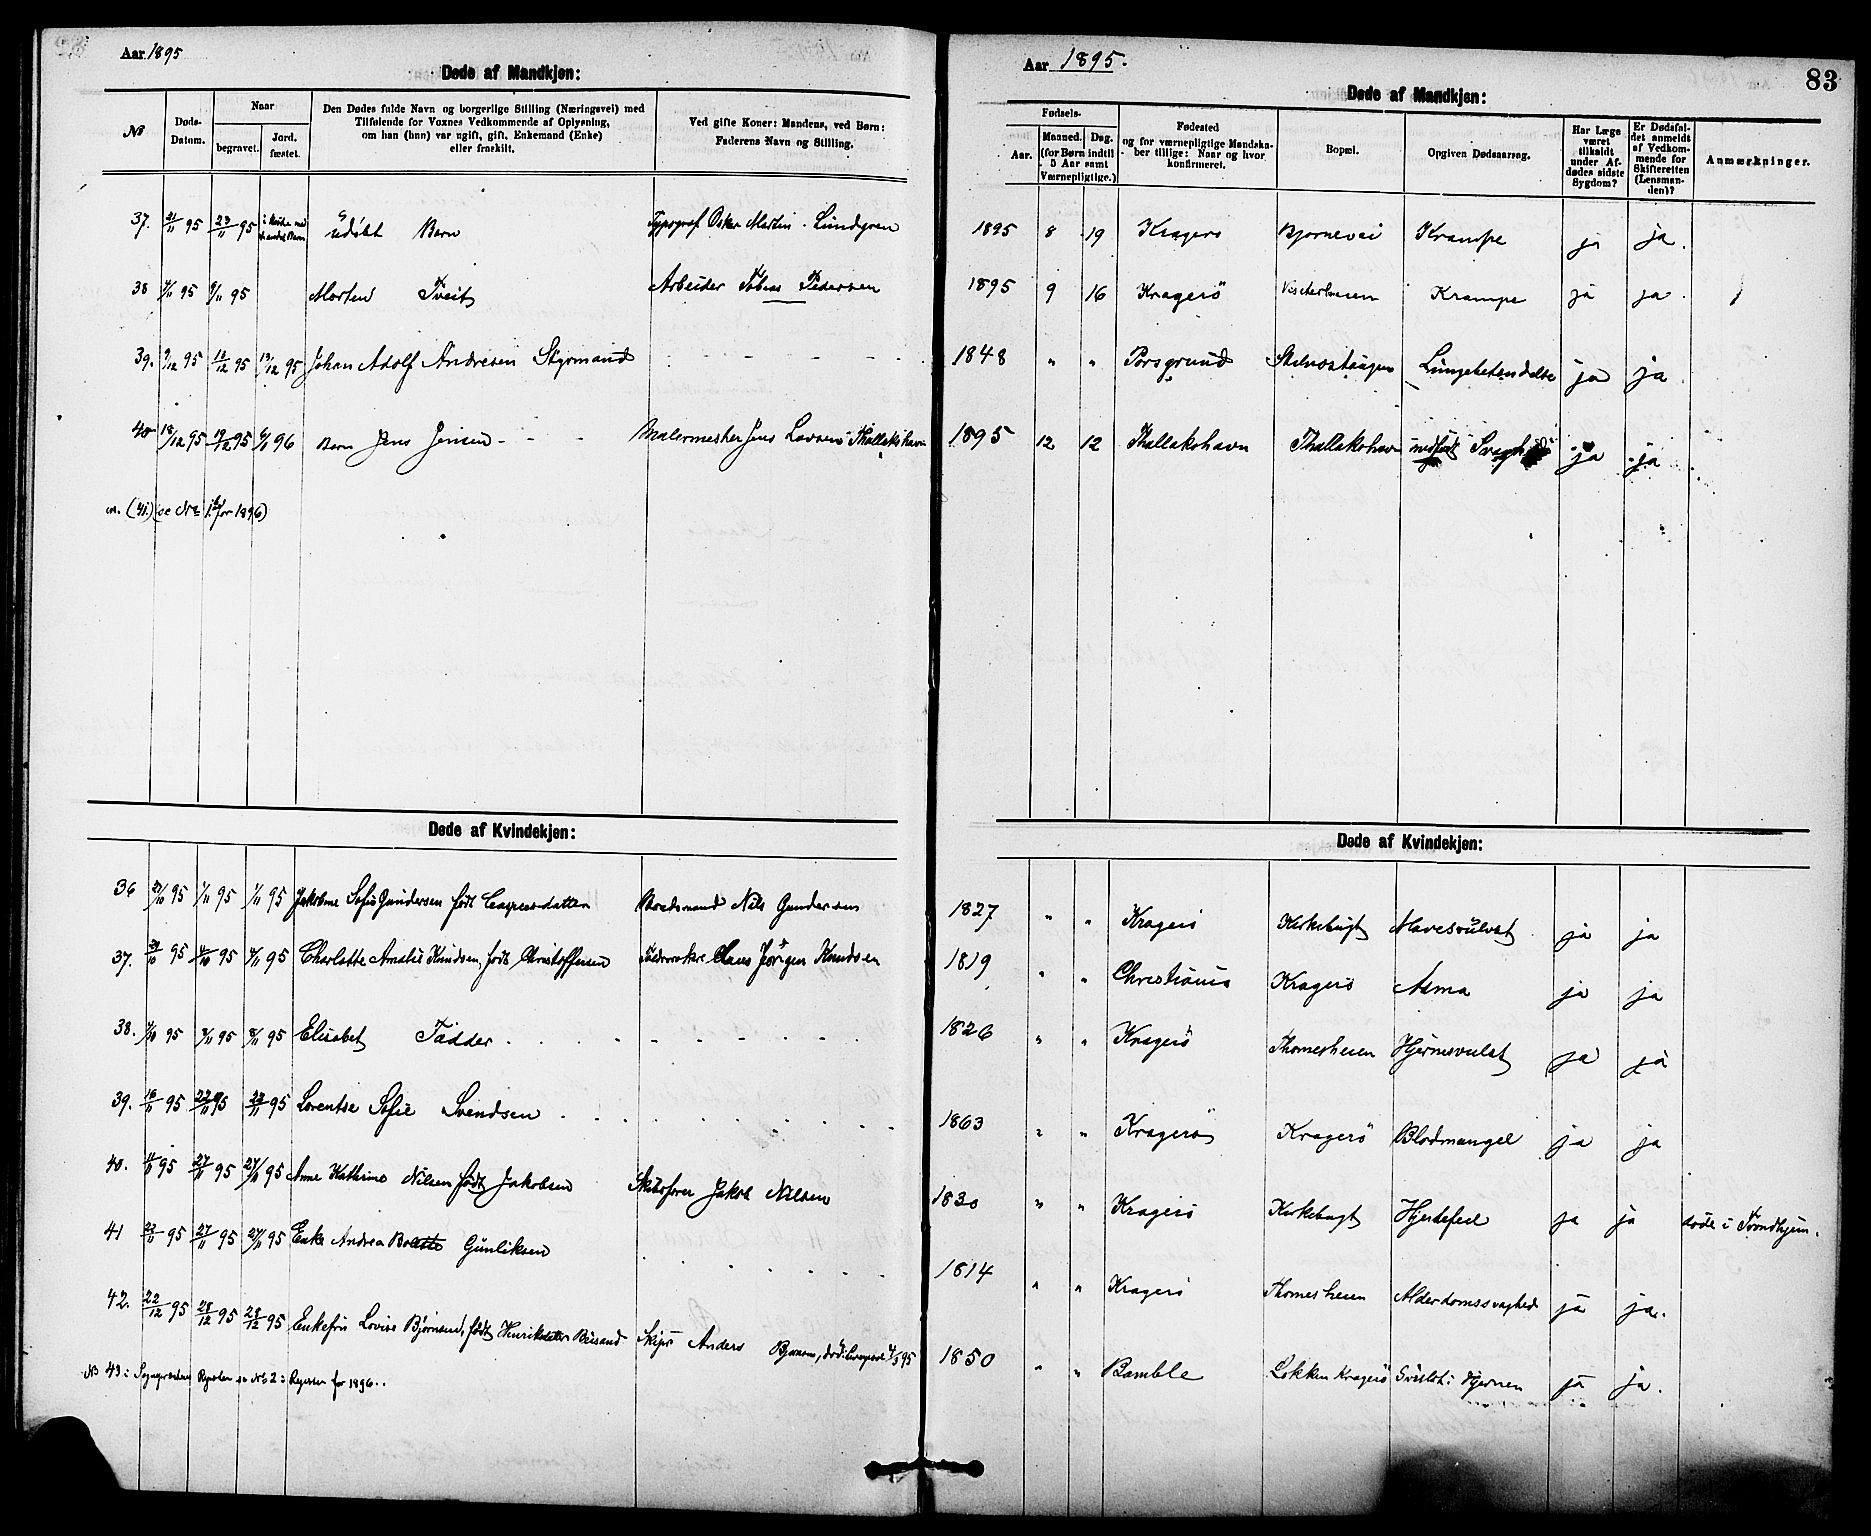 Aar 1895
Døde af Mandkjøn:
No
Døds-Datum.
Naar
begravet.
Jord.fæstet.
Den Dødes fulde Navn og borgerlige Stilling (Næringsvei) med
Tilføiende for Voxnes Vedkommende af Oplysning,
om han (hun) var ugift, gift, Enkemand (Enke)
eller fraskilt.
Ved gifte Koner: Mandens, ved Børn:
Faderens Navn og Stilling.
37. 21/11 95 23/11 95 udøbt Barn Typograf Oskar Martin Lundgren
38 95 95 Morten Tveit Arbeider Tobias Pedersen
39. 9/12 95 12/12 95 13/12 95 Johan Adolf Andresen Styrmand
40 18/12 95 19/12 95 96 Barn Jens Jensen Malermester Jens Larsen Thallakshavn
(41.) se No 1 for 1896)
Døde af Kvindekjøn:
36 95 1/11 95 1/11 95 Jakobine Sofie Gundersen født Caspersdatter Baadsmand Nils Gundersen
37. 95 95 95 Charlotte Amalie Knudsen, født Christoffersen Claus Jørgen Knudsen
38. 95 95 95 Elisabet Tidder
39. 16/11 95 22/11 95 22/11 95 Lorentse Sofie Svendsen
40. 95 27/11 95 27/11 95 Anne Kathrine Nilsen født Jakobsen Skibsfører Jakob Nilsen
41 23/11 95 27/11 95 27/11 95 Enke Andrea Gunliksen
42. 22/12 95 28/12 95 28/12 95 Enkefru Lovise Bjørnsen, født Skipr Anders Bjørnsen, 95
No 43 i No 2 i for 1896.
Aar 1895.
83
Døde af Mandkjøn:
Fødsels-
Aar.
Maaned. Dag.
(for Børn indtil
5 Aar samt
Værnepligtige.)
Fødested
og for værnepligtige Mandska-
ber tillige: Naar og hvor
konfirmeret.
Bopæl.
Opgiven Dødsaarsag.
Har Læge
været
tilkaldt
under Af-
dødes sidste
Sygdom?
Er Dødsfal-
det anmeldt
af Vedkom-
mende for
Skifteretten
(Lensman-
den)?
Anmærkninger.
1895 8 19 Kragerø Bjørnevei Krampe ja ja.
1895 9 16 Kragerø Krampe ja ja.
1848 " " Porsgrund Lungebetændelse ja ja.
1895 12 12 Thallakshavn Thallakshavn medfødt ja ja
Døde af Kvindekjøn:
1827 " " Kragerø Kirkebugt Mavesvulst ja ja
1819 " " Christiania Kragerø Asma ja ja
1826 " " Kragerø Thomesheien Hjernesvulst ja ja
1863 " " Kragerø Kragerø Blodmangel ja ja
1830 " " Kragerø Kirkebugt Hjertefeil ja ja døde i Trondhjem.
1814 " " Kragerø Thomesheien Alderdomssvaghed ja ja.
1850 " " Bamble Løkken Kragerø Svulst i Hjernen ja ja.